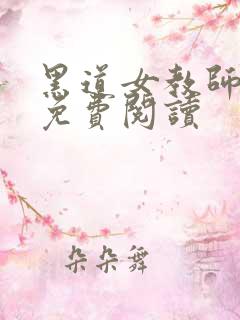 黑道女教師
免費閱讀
朵朵舞